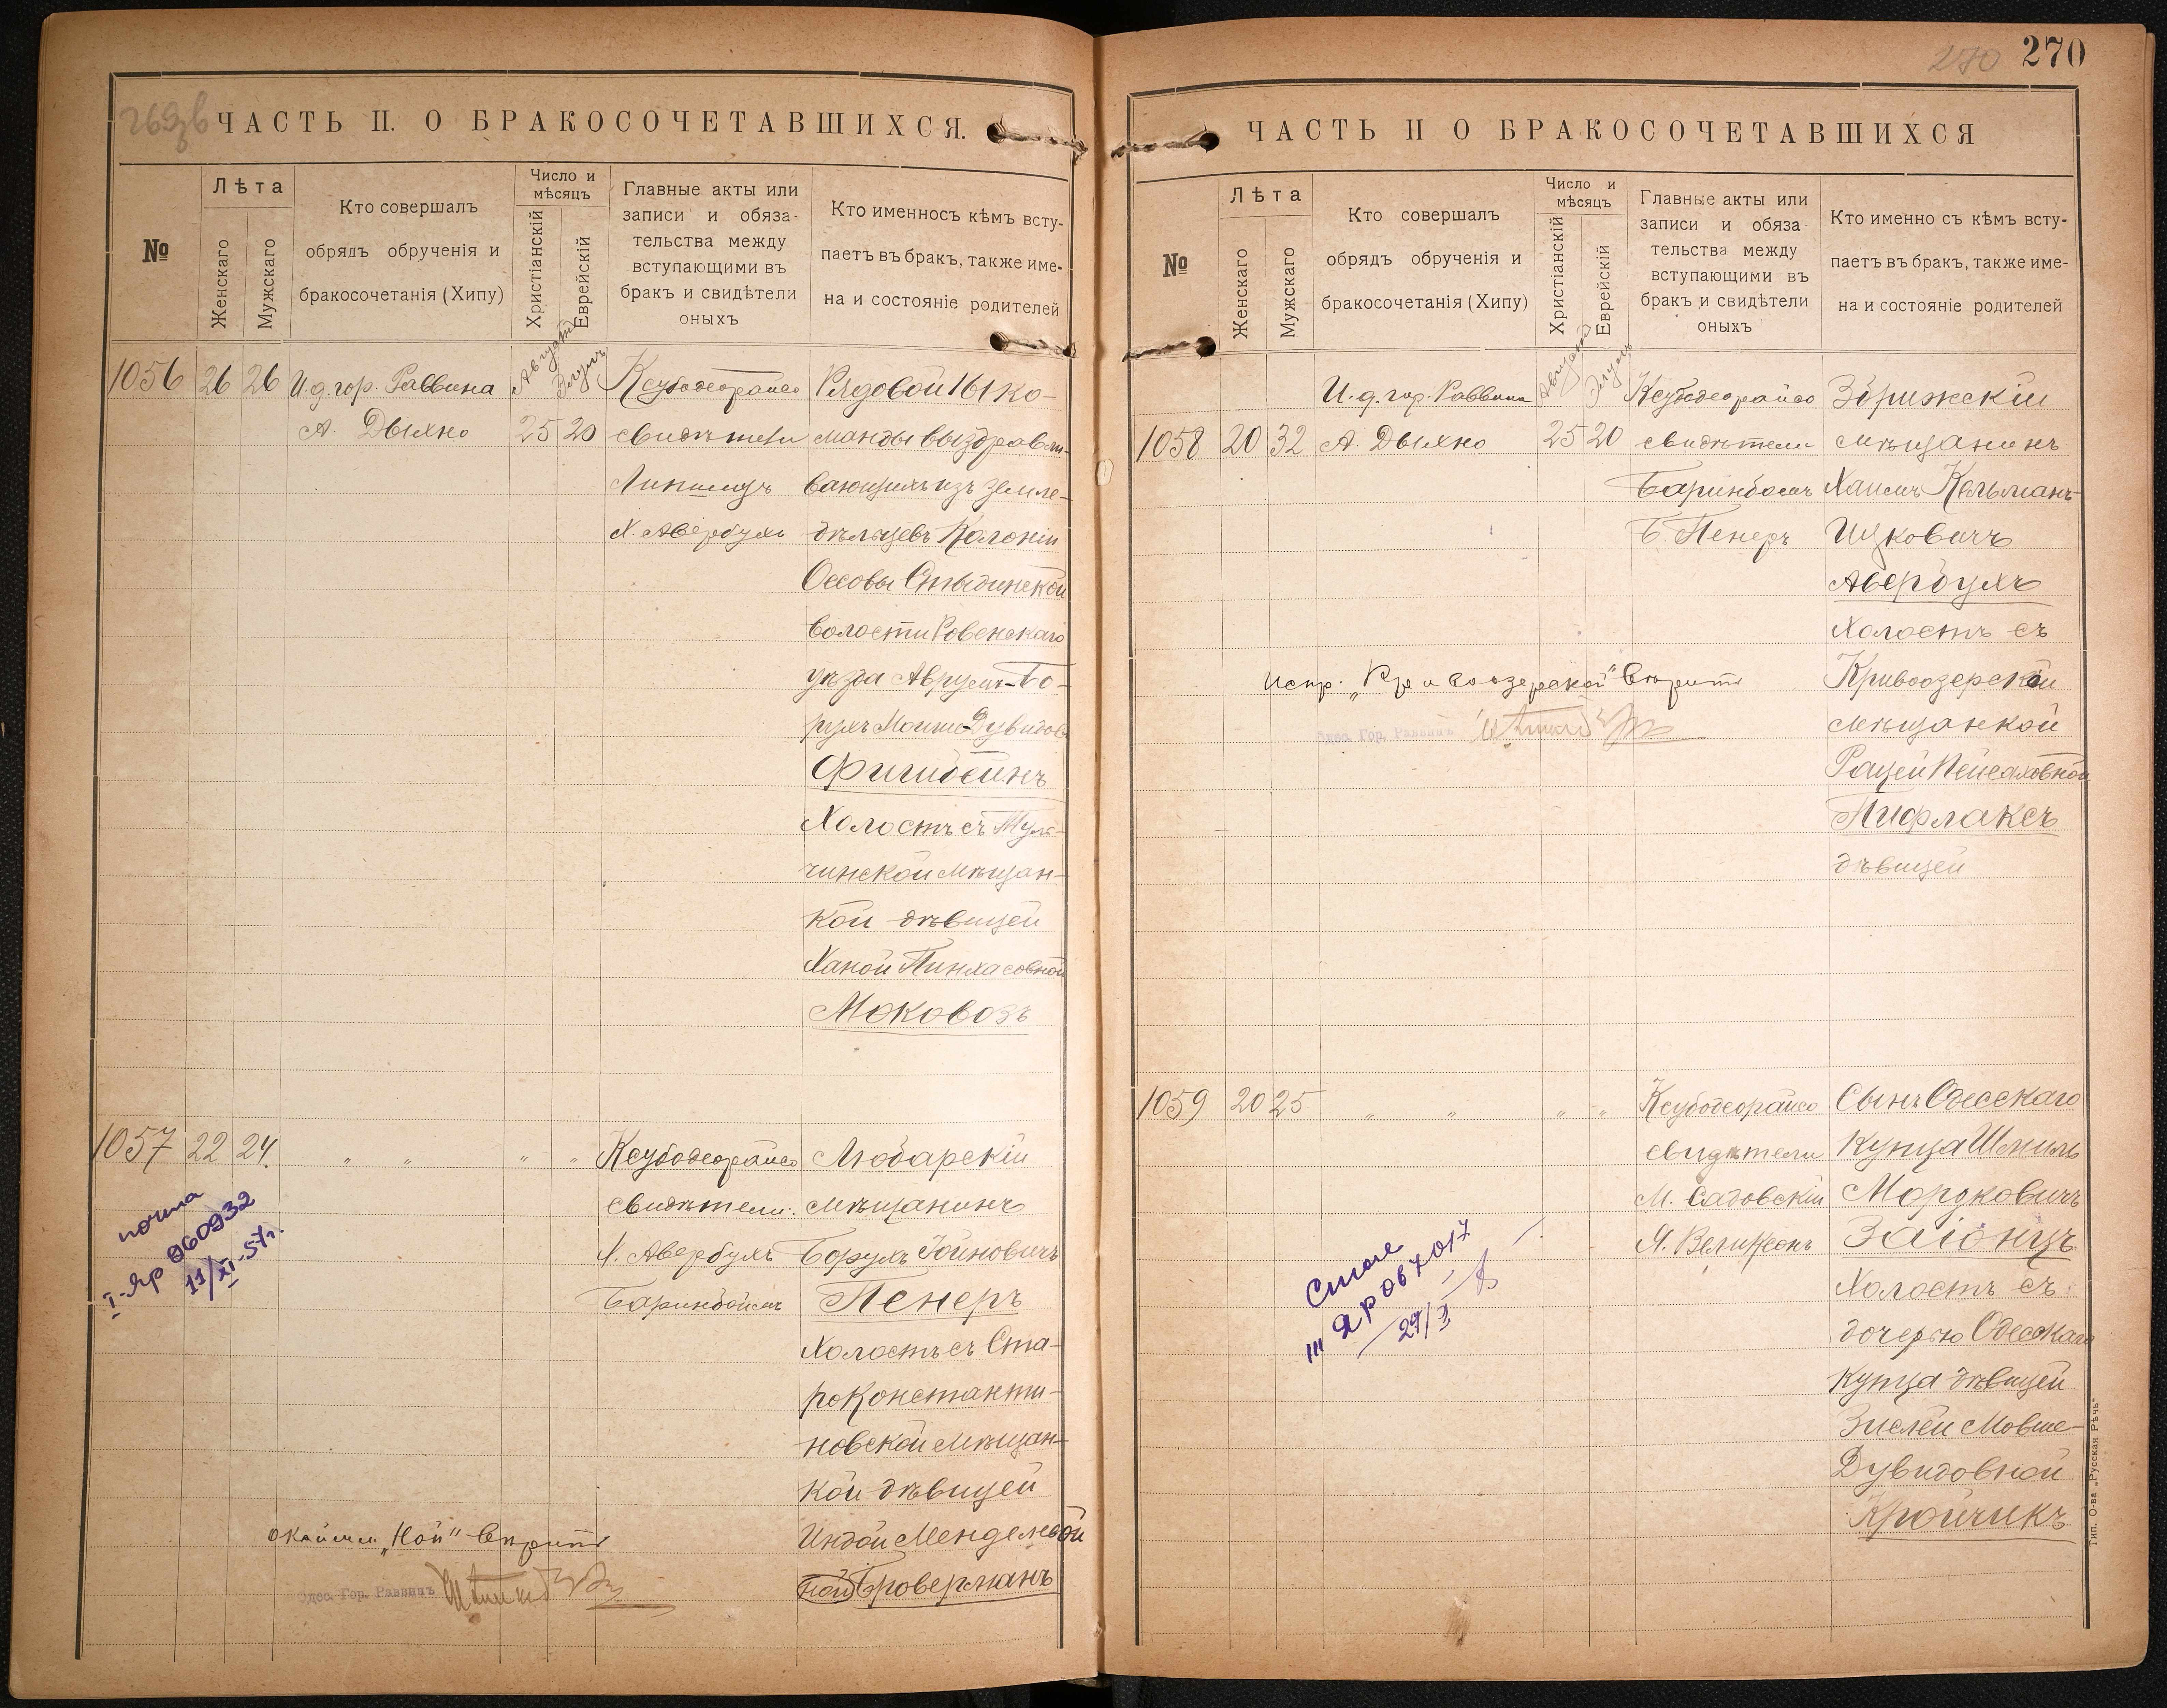 ЧАСТЬ II. О БРАКОСОЧЕТАВШИХСЯ.
№
Лѣта
Женскаго
Мужскаго
Кто совершалъ
обрядъ обрученія и
бракосочетанія (Хипу)
Число и
мѣсяцъ
Христіанскій
Еврейскій
Главные акты или
записи и обяза-
тельства между
вступающими въ
бракъ и свидѣтели
оныхъ
Кто именносъ кѣмъ всту-
паетъ въ бракъ, также име-
на и состояніе родителей
1056
26
26
И.д. гор. Раввина
А. Дыхно
Августъ
Элулъ
25
20
Ксубодеорайсо
свидѣтели
Липшицъ
Х. Авербухъ
Рядовой 161 ко-
манды выздоравли-
вающихъ изъ земле-
дѣльцевъ Колоніи
Оссовы
волости Ровенскаго
уѣзда Аврумъ-Бо-
рухъ Мошко-Дувидовъ
Фишбейнъ
Холостъ съ Туль-
чинской мѣщан-
кой дѣвицей
Ханой Пинхасовной
Моковозъ
1057
22
24.
" "
" "
Ксубодеорайсо
свидѣтели:
Х. Авербухъ
Баринбоймъ
Любарскій
мѣщанинъ
Борухъ Іойновичъ
Пенеръ
Холостъ съ Ста-
роконстанти-
новской мѣщан-
кой дѣвицей
Индой Менделевой
ной Броверманъ
почта
I-Яр 060932
11/XI-57г.
"Ной" вѣрить
Одес. Гор. Раввинъ
270
270
ЧАСТЬ II О БРАКОСОЧЕТАВШИХСЯ
№
Лѣта
Женскаго
Мужскаго
Кто совершалъ
обрядъ обрученія и
бракосочетанія (Хипу)
Число и
мѣсяцъ
Христіанскій
Еврейскій
Главные акты или
записи и обяза
тельства между
вступающими въ
бракъ и свидѣтели
оныхъ
Кто именно съ кѣмъ всту-
паетъ въ бракъ, также име-
на и состояніе родителей
1058
20
32
И.д. гор. Раввина
А. Дыхно
Августъ
Элулъ
25
20
Ксубодеорайсо
свидѣтели
Баринбоймъ
Б. Пенеръ
Згрижскій
мѣщанинъ
Хаимъ Кельманъ-
Ицковичъ
Авербухъ
Холостъ съ
Кривоозерской
мѣщанкой
Рацей Пейсаховной
Пифлаксъ
дѣвицей
Испр. "Кривоозерской" вѣрить
Одес. Гор. Раввинъ
1059
20
25
" "
" "
Ксубодеорайсо
свидѣтели
М. Садовскій
Я. Великсонъ
Сынъ Одесскаго
Купца Шмиль
Мордковичъ
Заіонцъ
Холостъ съ
дочерью Одесскаго
Купца дѣвицей
Зислей Мовше-
Дувидовной
Кройчикъ
III ЯР 067017
29/X
Тип. О-ва "Русская Рѣчь"